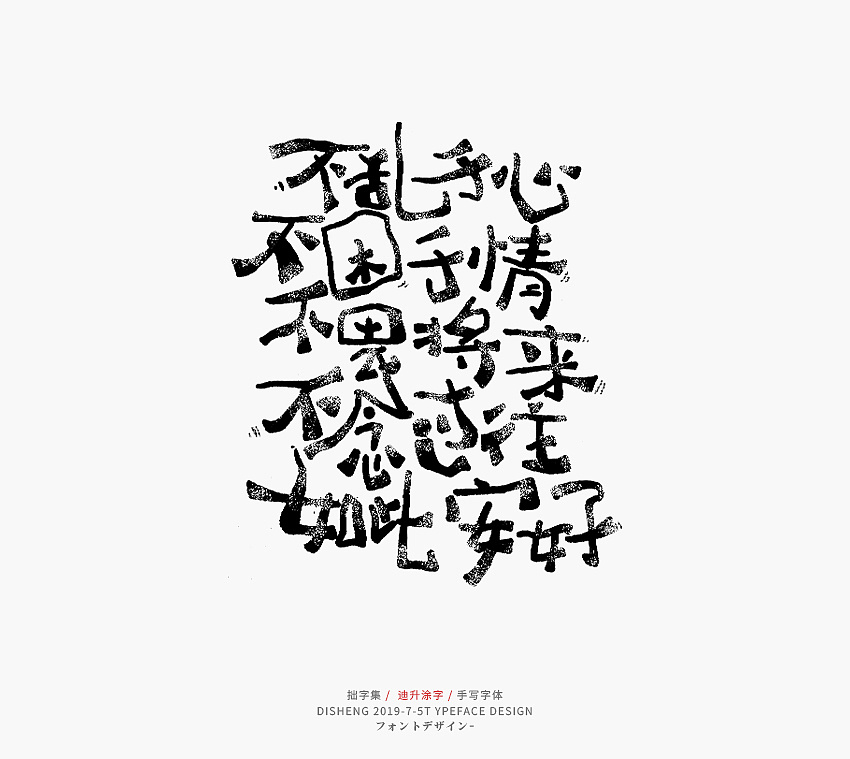 不乱于心
不困于情
不畏将来
不念过往
如此 安好
拙字集 / 迪升涂字 / 手写字体
DISHENG 2019-7-5T YPEFACE DESIGN
フォントデザイン-